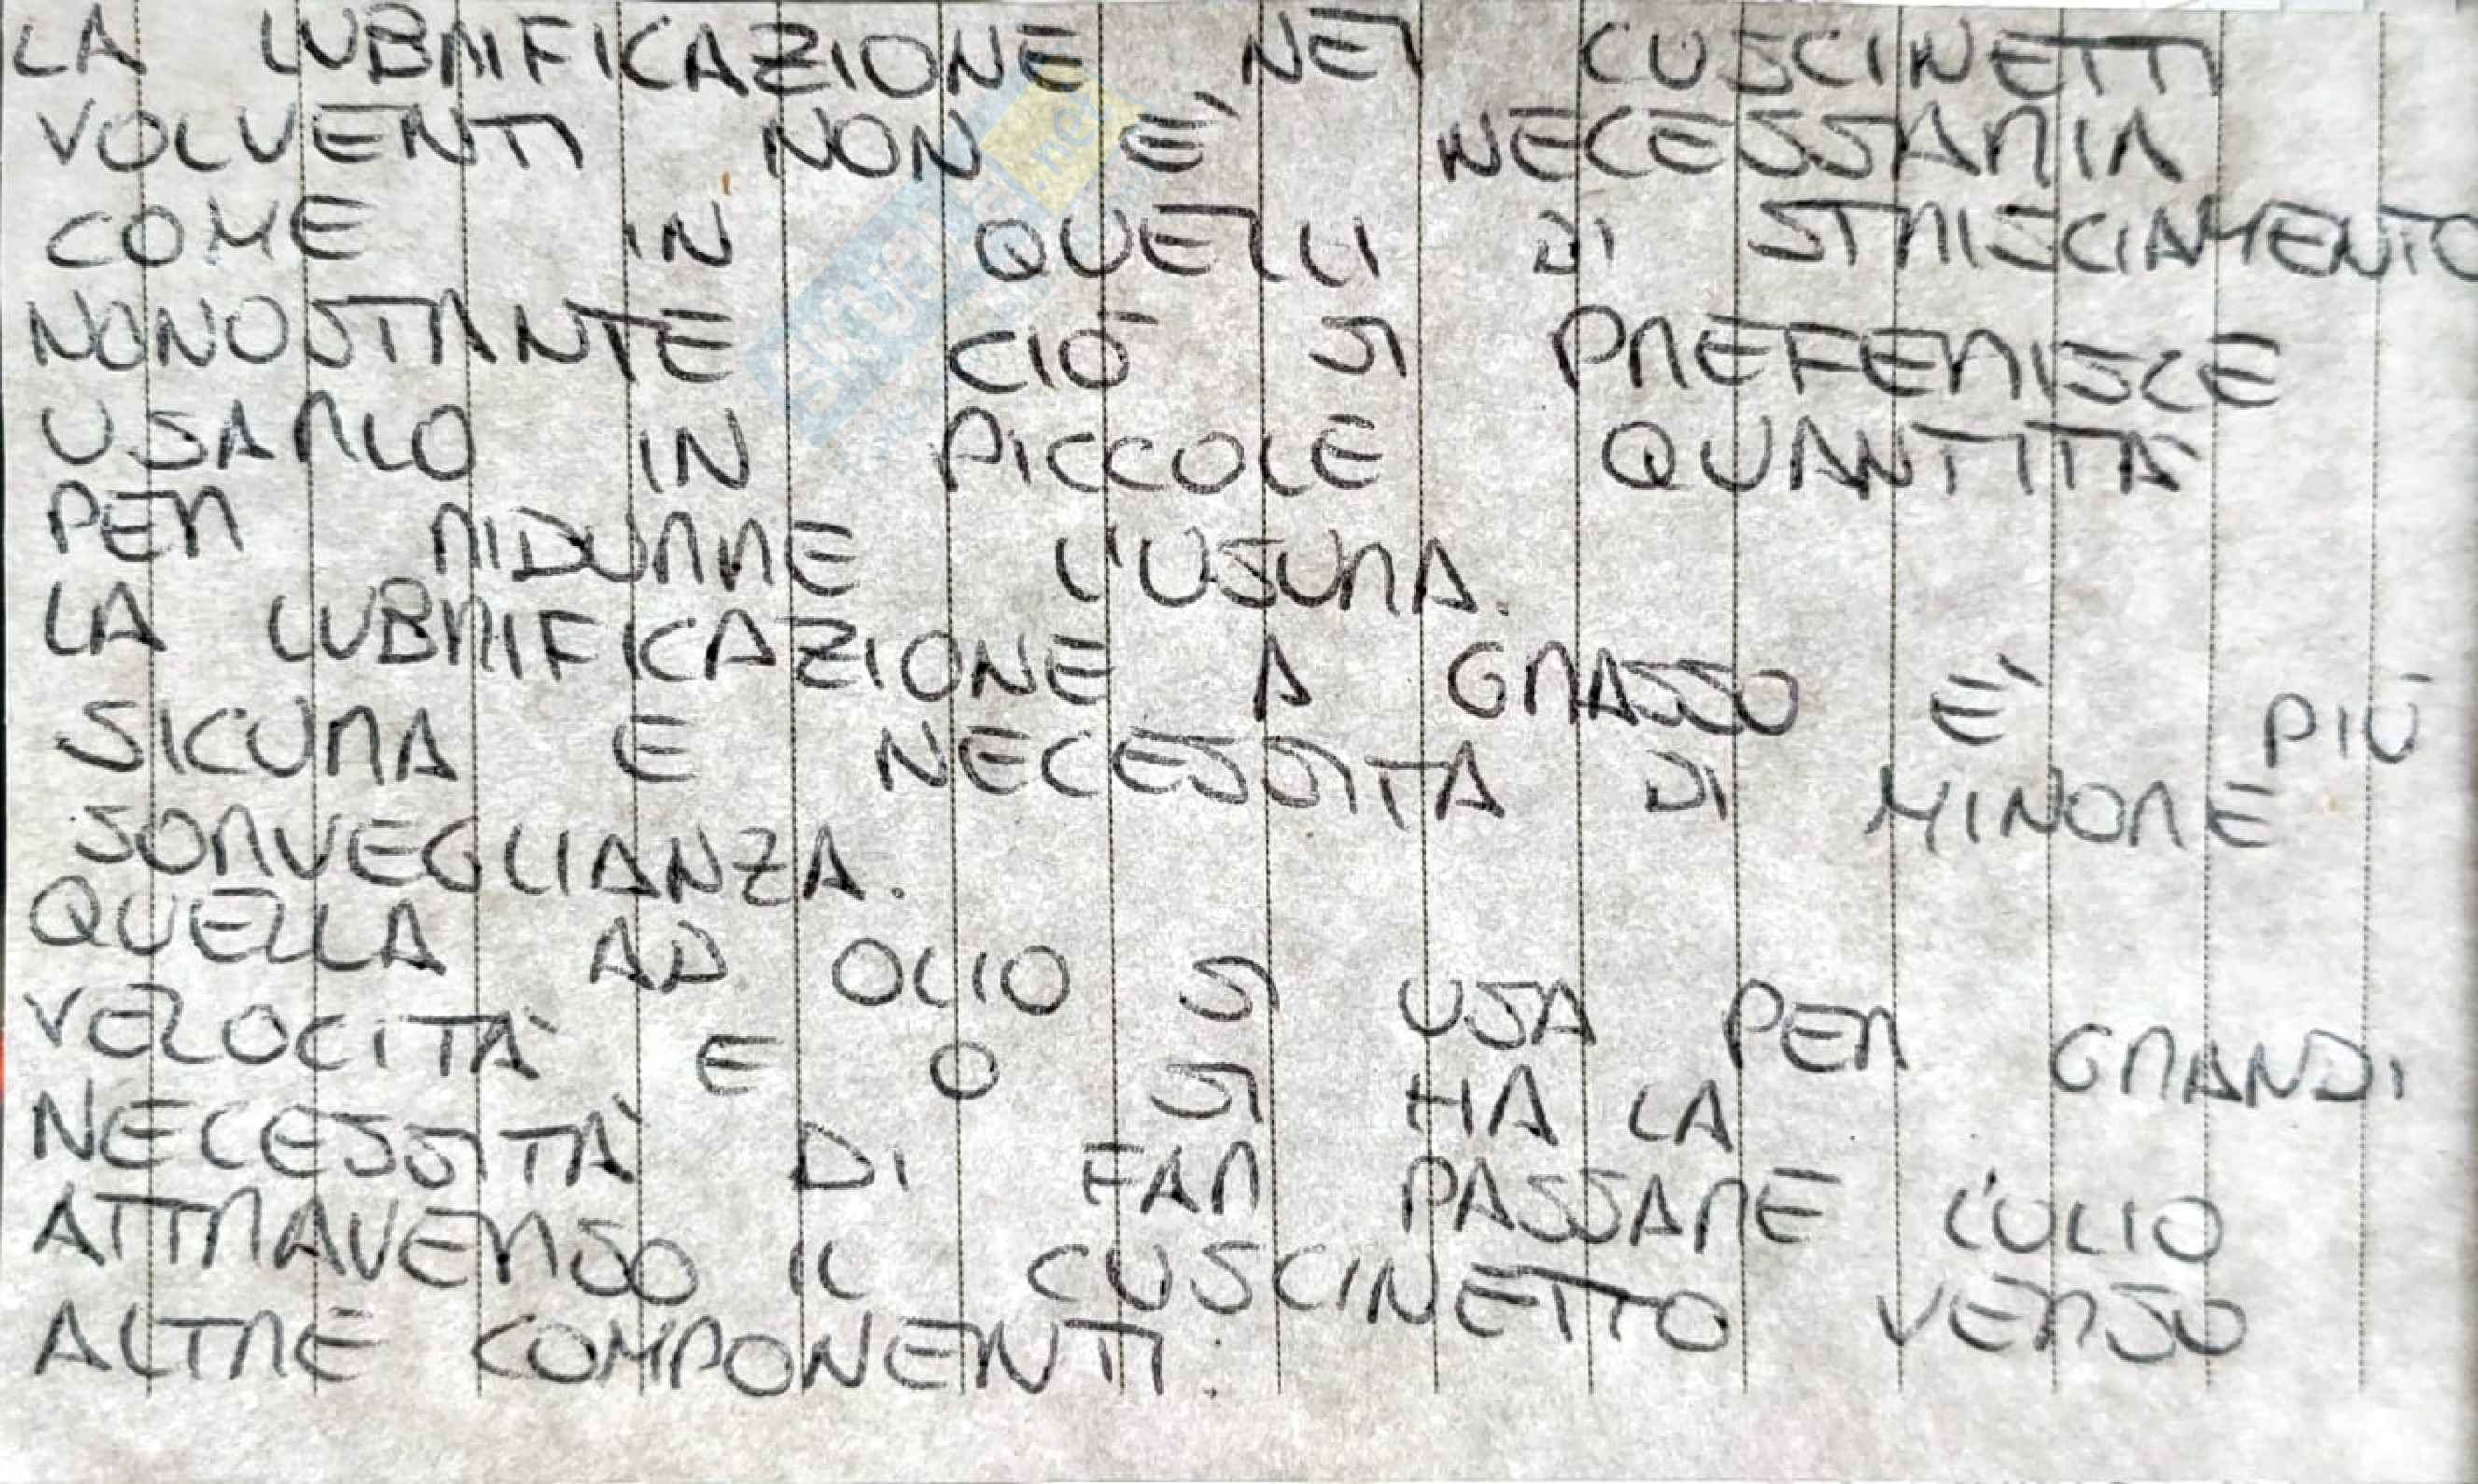 LA LUBRIFICAZIONE NEI CUSCINETTI
VOLVENTI NON È NECESSARIA
COME IN QUELLI DI STRISCIAMENTO
NONOSTANTE CIÒ SI PREFERISCE
USARLO IN PICCOLE QUANTITÀ
PER RIDURRE L'USURA.
LA LUBRIFICAZIONE A GRASSO È PIÙ
SICURA E NECESSITA DI MINORE
SORVEGLIANZA.
QUELLA AD OLIO SI USA PER GRANDI
VELOCITÀ E O SI HA LA
NECESSITÀ DI FAR PASSARE L'OLIO
ATTRAVERSO IL CUSCINETTO VERSO
ALTRE COMPONENTI.
SKUOLA.net